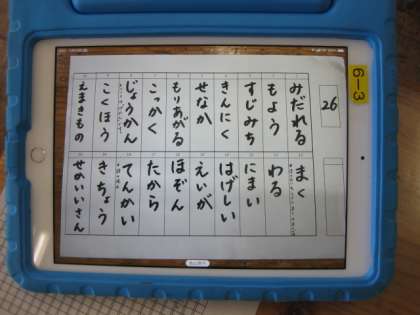 26
みだれる
もよう
すじみち
きんにく
せなか
もりあがる
こっかく
じょうかん
こくほう
えまきもの
まく
わる
にまい
はげしい
えいが
ほぞん
たから
てんかい
きちょう
せかいいさん
6-3